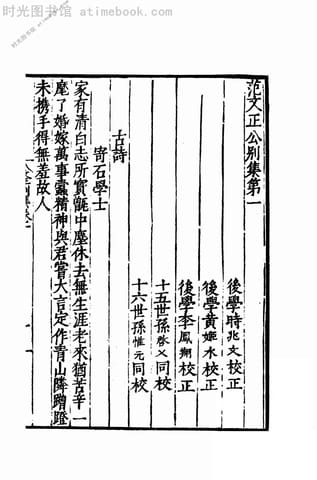 时光图书馆 atimebook.com
时光图书馆 atimebook.com
范文正公别集第一
後學時兆文校正
後學黃姬水校正
後學李鳳翔校正
十五世孫啓乂同校
十六世孫惟元同校
古詩
寄石學士
家有清白志所實甑中塵休去無生涯老來猶苦辛一
麾了婚嫁萬事蠹精神與君嘗大言定作青山隣蹭蹬
未携手得無羞故人